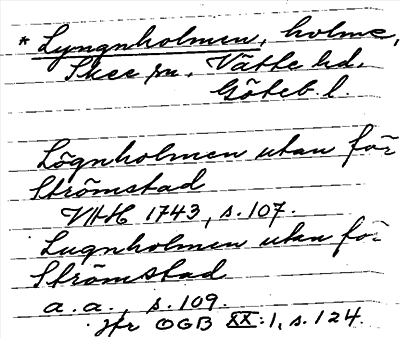 * Lyngnholmen, holme,
Skee sn. Vätte hd.
Göteb. l.
Lögnholmen utan för
Strömstad
VHH 1743, s. 107.
Lugnholmen utan för
Strömstad
a. a., s. 109.
Jfr OGB XX:1, s. 124.